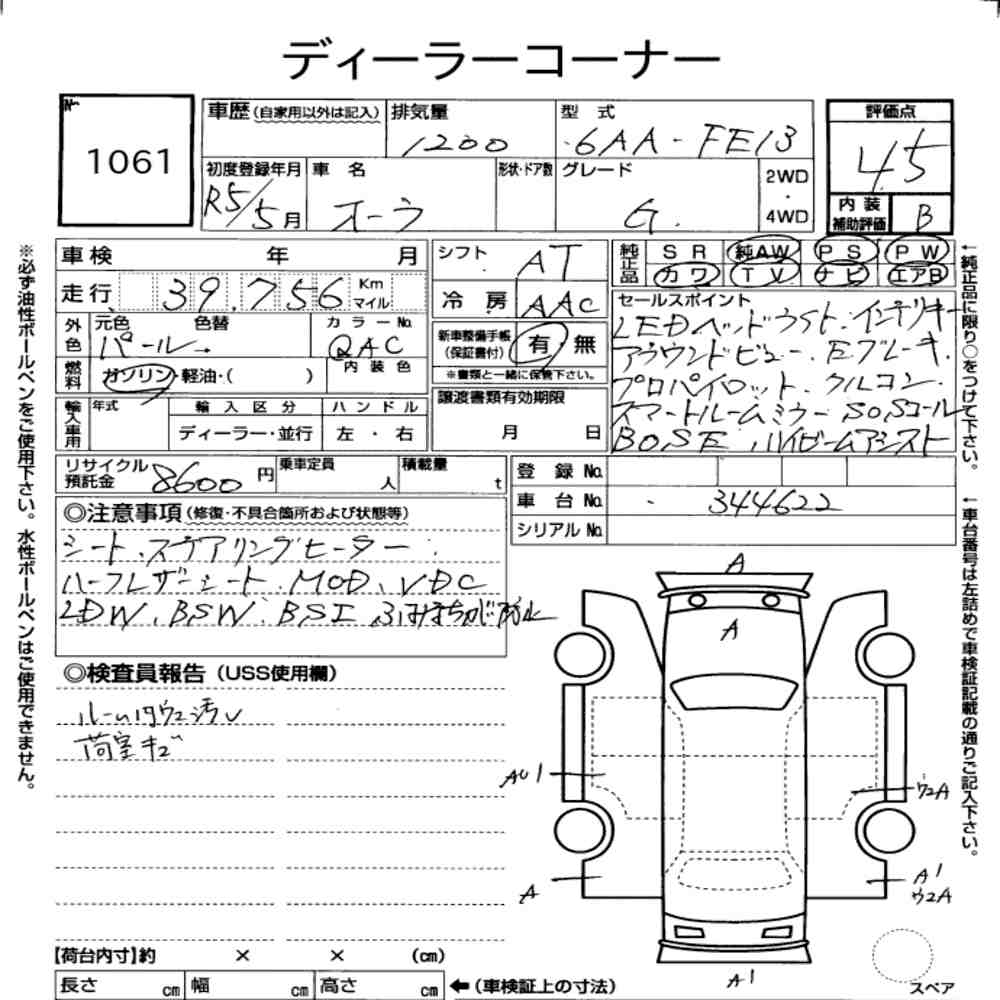 ディーラーコーナー
№
1061
車歴(自家用以外は記入)
排気量
1200
型 式
6AA-FE13
評価点
4.5
初度登録年月
R5/5月
車 名
オーラ
形状・ドア数
グレード
G.
2WD
・
4WD
内 装
補助評価
B
車検 年 月
走行 39,756 Km
マイル
外色
元色 色替
パール→
カラーNo.
QAC
燃料
ガソリン・軽油・( )
内 装 色
輸入車用
年式
輸 入 区 分
ディーラー・並行
ハ ン ド ル
左 ・ 右
シフト
AT
冷 房
AAC
新車整備手帳
(保証書付)
有・無
※書類と一緒に保管下さい。
譲渡書類有効期限
月 日
純正品
S R 純AW P S P W
カワ T V ナビ エアB
セールスポイント
LEDヘッドライト.インテリキー
アラウンドビュー.Eブレーキ
プロパイロット.クルコン.
スマートルームミラー SOSコール
BOSE ハイビームアシスト
リサイクル
預託金
8600円
乗車定員
人
積載量
t
登 録 No.
車 台 No.
344622
シリアル No.
◎注意事項(修復・不具合箇所および状態等)
シート.ステアリングヒーター
ハーフレザーシート.MOD.VDC
LDW.BSW.BSI ふみまちがい防止
◎検査員報告(USS使用欄)
ルーム内ウエ汚レ
荷室キズ
A
A
AU1
ウ2A
A
A1
ウ2A
A1
スペア
【荷台内寸】約 × × (cm)
長さ cm
幅 cm
高さ cm
←(車検証上の寸法)
※必ず油性ボールペンをご使用下さい。水性ボールペンはご使用できません。
←純正品に限り○をつけて下さい。
←車台番号は左詰めで車検証記載の通りご記入下さい。